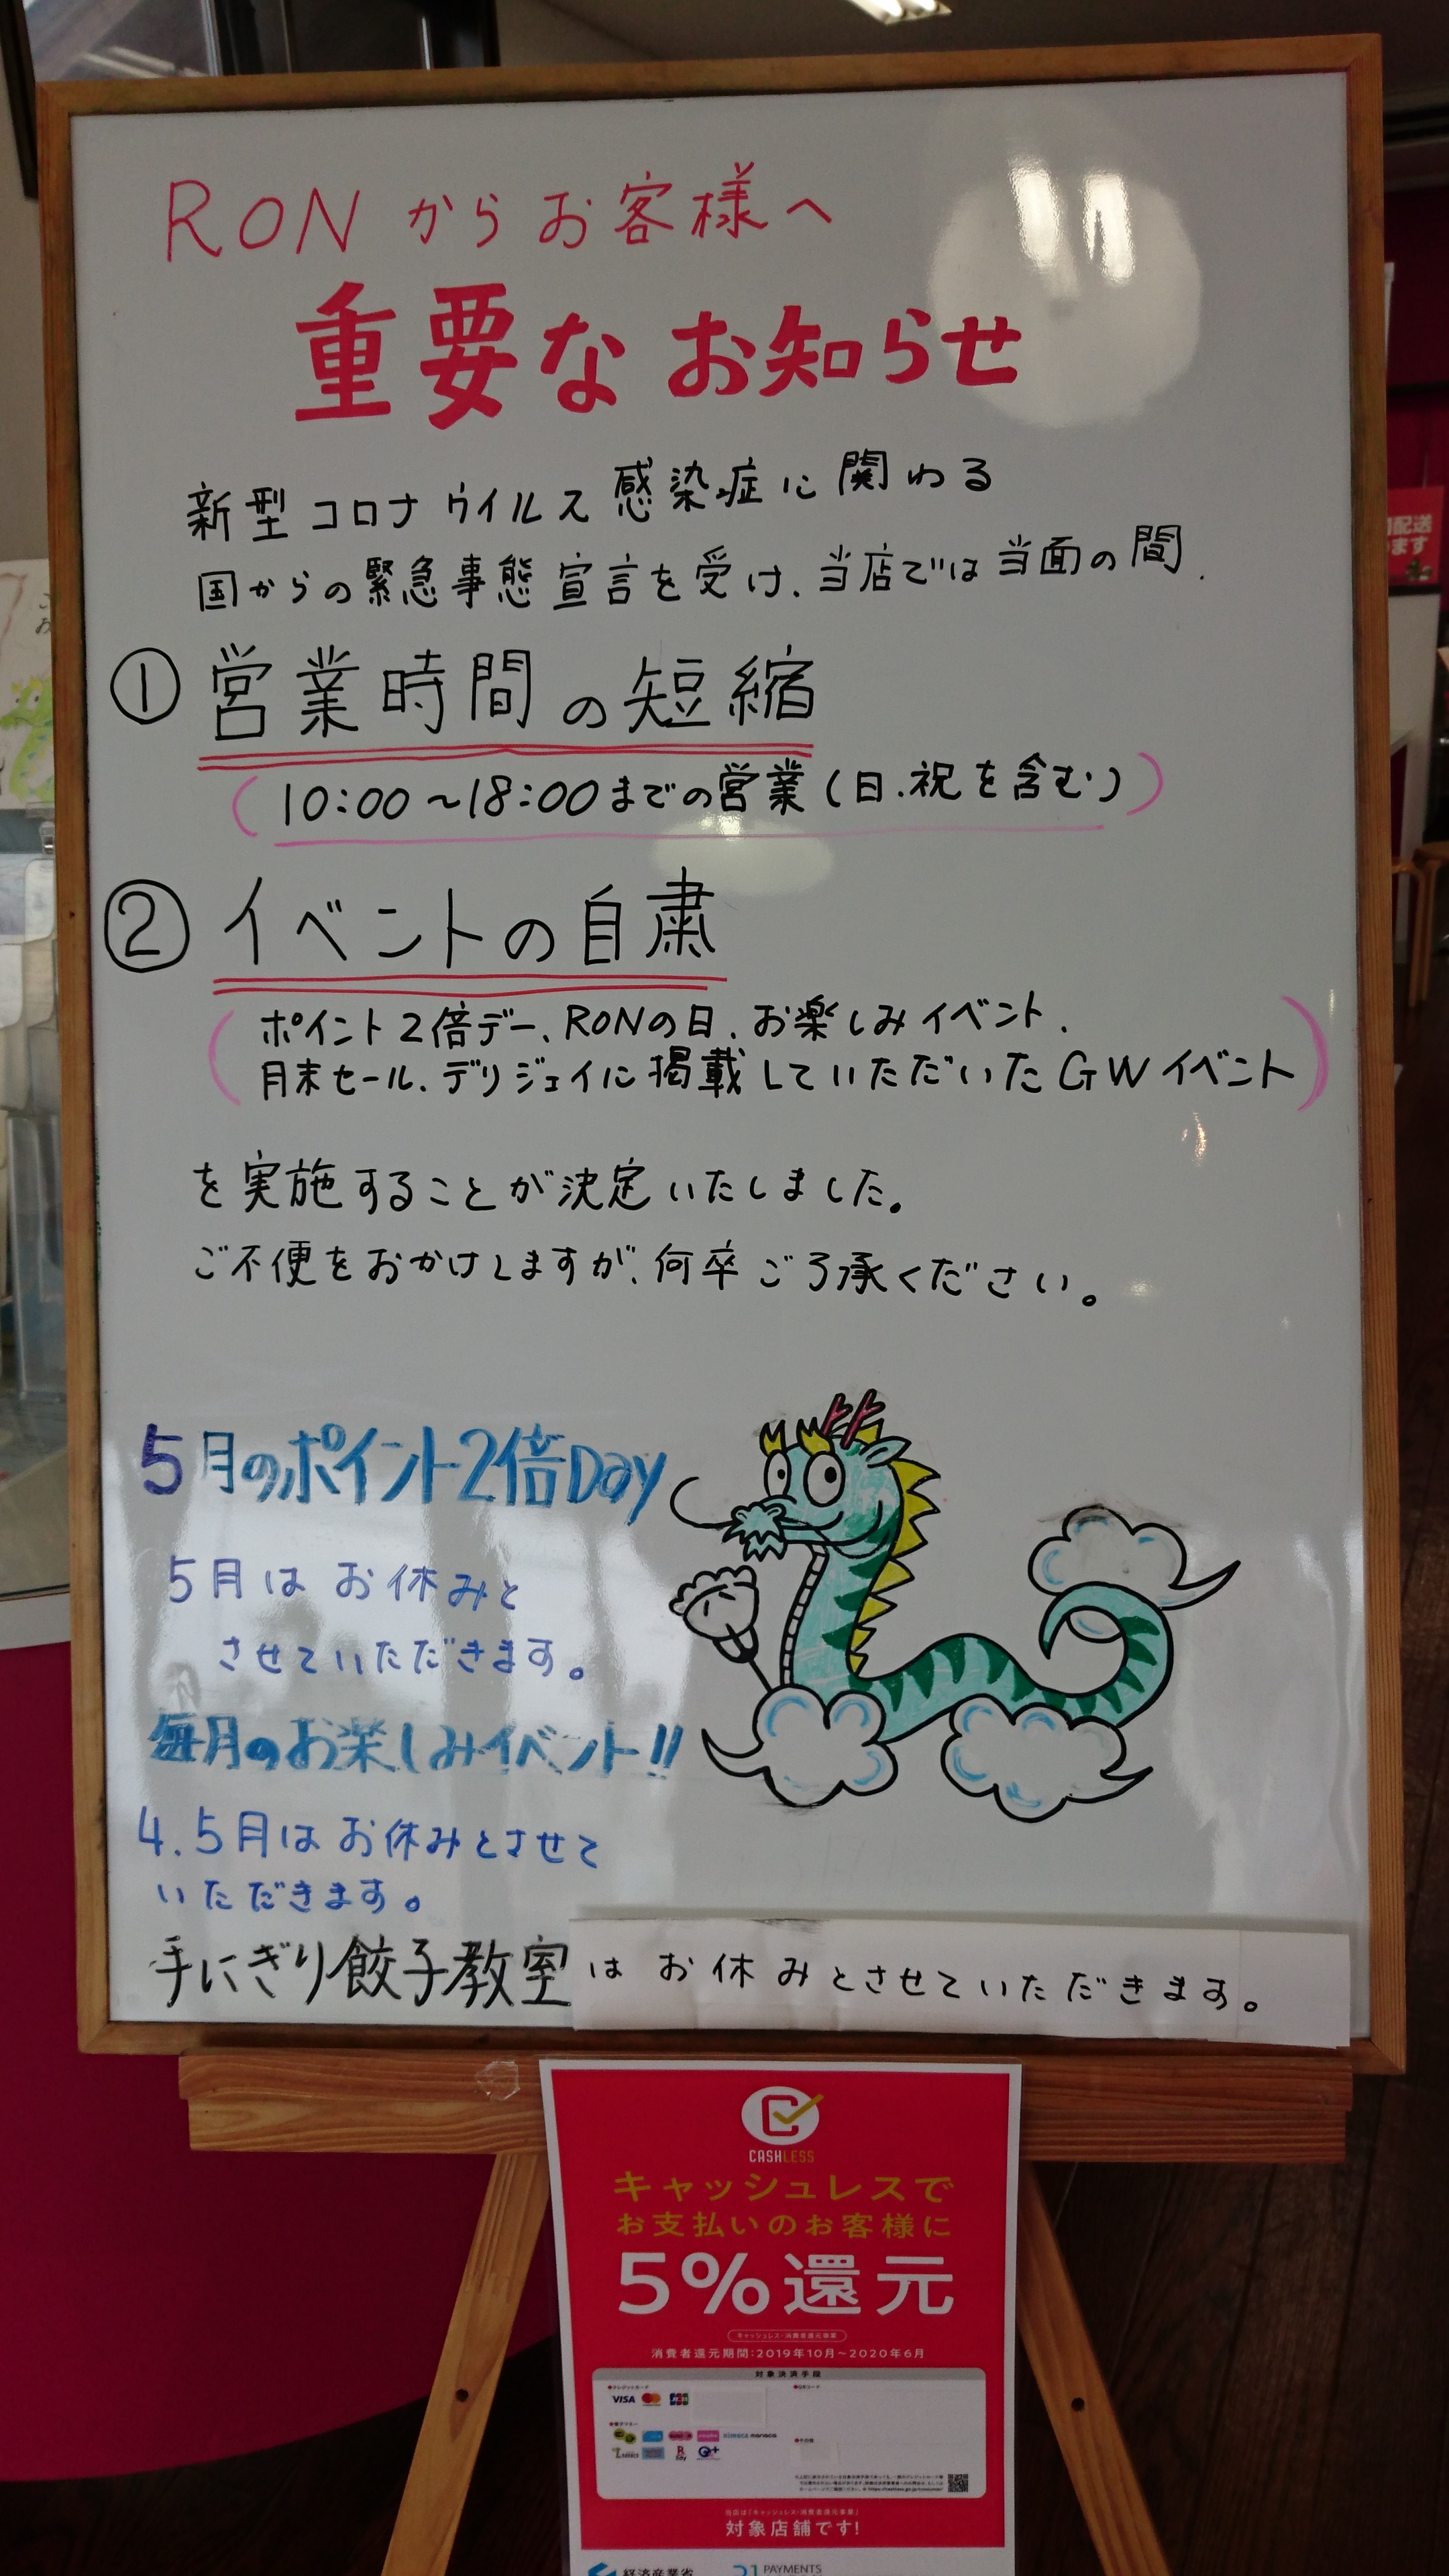 RONからお客様へ
重要なお知らせ
新型コロナウイルス感染症に関わる
国からの緊急事態宣言を受け、当店では当面の間、
① 営業時間の短縮
(10:00~18:00までの営業(日、祝を含む))
② イベントの自粛
(ポイント2倍デー、RONの日、お楽しみイベント、
月末セール、デリジェイに掲載していただいたGWイベント)
を実施することが決定いたしました。
ご不便をおかけしますが、何卒ご了承ください。
5月のポイント2倍Day
5月はお休みと
させていただきます。
毎月のお楽しみイベント!!
4.5月はお休みとさせて
いただきます。
手にぎり餃子教室はお休みとさせていただきます。
CASHLESS
キャッシュレスで
お支払いのお客様に
5%還元
キャッシュレス・消費者還元事業
消費者還元期間:2019年10月~2020年6月
対象決済手段
クレジットカード
QRコード
VISA
JCB
電子マネー
nimoca manaca
その他
当店は「キャッシュレス・消費者還元事業」
対象店舗です!
経済産業省
PAYMENTS
配送
ます